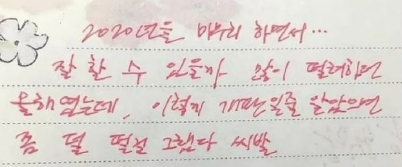 2020년을 마무리 하면서...
잘 할 수 있을까 많이 떨려하던
올해였는데, 이렇게 개판일줄 알았으면
좀 덜 떨걸 그랬다 씨발